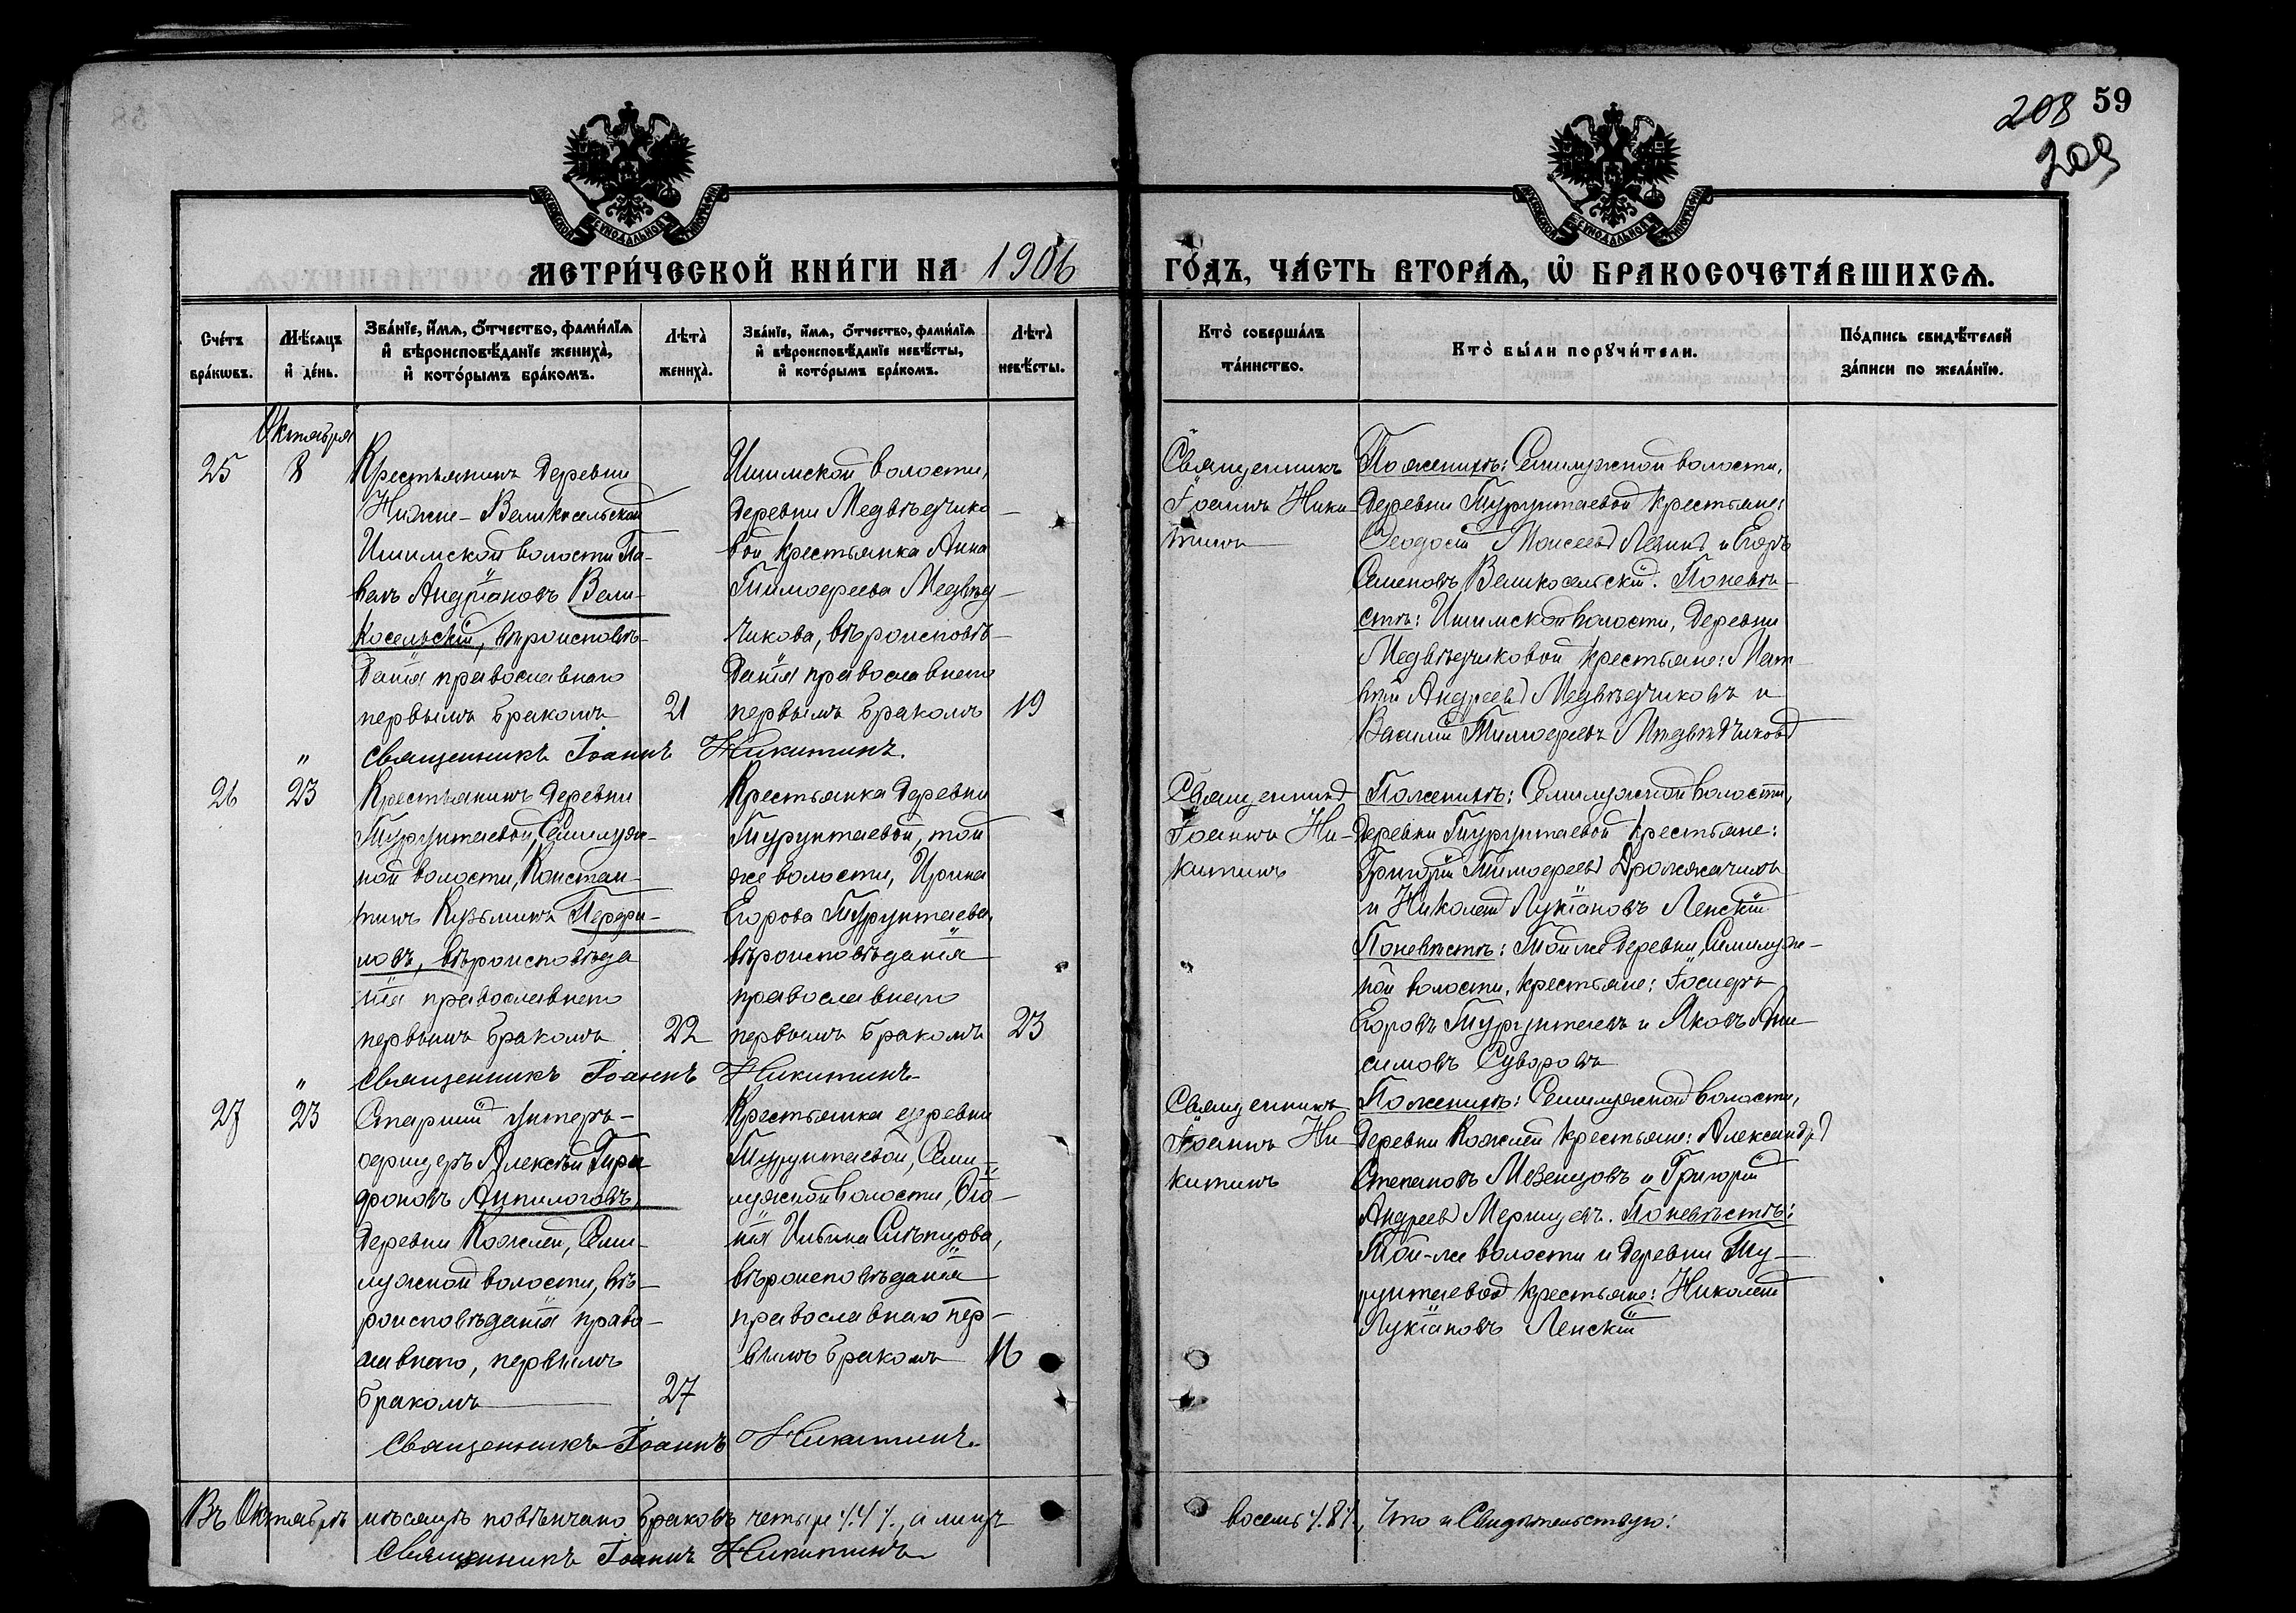 208 59
209
МОСКОВСКОЙ СѴНОДАЛЬНОЙ ТИПОГРАФІИ
МОСКОВСКОЙ СѴНОДАЛЬНОЙ ТИПОГРАФІИ
МЕТРИ́ЧЕСКОЙ КНИ́ГИ НА 1906
ГО́ДЪ, ЧА́СТЬ ВТОРА́Ѧ, Ѡ҆ БРАКОСОЧЕТА́ВШИХСѦ.
Сче́тъ
бра́кѡвъ.
Мѣ́сѧцъ
и҆ де́нь.
Зва́нїе, и҆́мѧ, ѻ҆́тчество, фами́лїѧ
и҆ вѣроисповѣ́данїе жениха̀,
и҆ кото́рымъ бра́комъ.
Лѣта̀
жениха̀.
Зва́нїе, и҆́мѧ, ѻ҆́тчество, фами́лїѧ
и҆ вѣроисповѣ́данїе невѣ́сты,
и҆ кото́рымъ бра́комъ.
Лѣта̀
невѣ́сты.
Кто̀ соверша́лъ
та́инство.
Кто̀ бы́ли порꙋчи́тели.
По́дпись свидѣ́телей
за́писи по жела́нїю.
Октября
25
8
Крестьянинъ деревни
Нижне-Великосельской
Ишимской волости Па-
велъ Андріановъ Вели-
косельскій, вѣроисповѣ-
данія православнаго
первымъ бракомъ
21
Ишимской волости,
деревни Медвѣдчико-
вой крестьянка Анна
Тимофеева Медвѣд-
чикова, вѣроисповѣ-
данія православнаго
первымъ бракомъ
19
Священникъ
Іоаннъ Ники-
тинъ
По женихѣ: Семилужной волости,
деревни Турунтаевой крестьяне:
Феодосій Моисеевъ Лезинъ и Егоръ
Семеновъ Великосельскій. По невѣ-
стѣ: Ишимской волости, деревни
Медвѣдчиковой крестьяне: Мат-
вѣй Андреевъ Медвѣдчиковъ и
Василій Тимофеевъ Медвѣдчиковъ
" Священникъ Іоаннъ Никитинъ.
26
23
Крестьянинъ деревни
Турунтаевой, Семилуж-
ной волости, Констан-
тинъ Кузьминъ Перфи-
ловъ, вѣроисповѣда
нія православнаго
первымъ бракомъ
22
Крестьянка деревни
Турунтаевой, той
же волости, Ирина
Егорова Турунтаева,
вѣроисповѣданія
православнаго
первымъ бракомъ
23
Священникъ
Іоаннъ Ни-
китинъ
По женихѣ: Семилужной волости,
деревни Турунтаевой крестьяне:
Григорій Тимофеевъ Дрожжачихъ
и Николай Лукіановъ Ленскій
По невѣстѣ: Той же деревни, Семилуж-
ной волости, крестьяне: Іосифъ
Егоровъ Турунтаевъ и Яковъ Ани-
симовъ Суворовъ
" Священникъ Іоаннъ Никитинъ
27
23
Старшій унтеръ-
офицеръ Алексѣй
фроновъ Анпилоговъ,
деревни Кожлей, Семи-
лужной волости, вѣ-
роисповѣданія право-
славнаго, первымъ
бракомъ
27
Крестьянка деревни
Турунтаевой, Семи-
лужной волости,
нія Ильина Слѣпцова,
вѣроисповѣданія
православнаго пер-
вымъ бракомъ
16
Священникъ
Іоаннъ Ни-
китинъ
По женихѣ: Семилужной волости,
деревни Кожлей крестьяне: Александръ
Степановъ Мезенцовъ и Григорій
Андреевъ Мерницевъ. По невѣстѣ:
Той-же волости и деревни Ту-
рунтаевой крестьяне: Николай
Лукіановъ Ленскій
Священникъ Іоаннъ Никитинъ
Въ Октябрѣ мѣсяцѣ повѣнчано браковъ четыре /.4/., а лицъ
восемь /.8/., что и свидѣтельствую:
Священникъ Іоаннъ Никитинъ